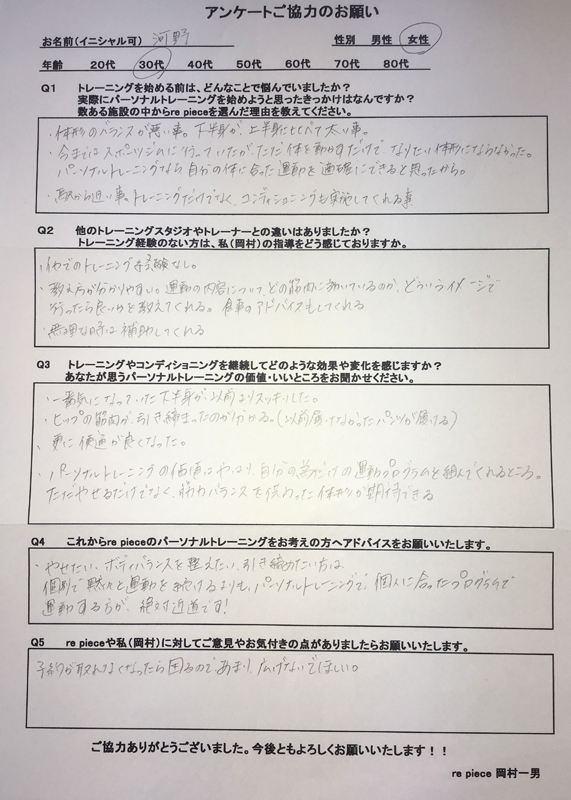 アンケートご協力のお願い
お名前(イニシャル可) 河野 性別 男性 女性
年齢 20代 30代 40代 50代 60代 70代 80代
Q1 トレーニングを始める前は、どんなことで悩んでいましたか？
実際にパーソナルトレーニングを始めようと思ったきっかけはなんですか？
数ある施設の中からre pieceを選んだ理由を教えてください。
・体形のバランスが悪い事。下半身が上半身に比べて太い事。
・今まではスポーツジムに行っていたがただ体を動かすだけでなりたい体形にならなかった。
パーソナルトレーニングなら自分の体に合った運動を適確にできると思ったから。
・駅から近い事。トレーニングだけでなく、コンディショニングも実施してくれる事
Q2 他のトレーニングスタジオやトレーナーとの違いはありましたか？
トレーニング経験のない方は、私(岡村)の指導をどう感じておりますか。
・他でのトレーニング経験なし。
・教え方が分かりやすい。運動の内容について、どの筋肉に効いているのか、どういうイメージで
行ったら良いかを教えてくれる。食事のアドバイスもしてくれる
・無理な時は補助してくれる
Q3 トレーニングやコンディショニングを継続してどのような効果や変化を感じますか？
あなたが思うパーソナルトレーニングの価値・いいところをお聞かせください。
・一番気になっていた下半身が以前よりスッキリした。
・ヒップの筋肉が引き締まったのが分かる。(以前履けなかったパンツが履ける)
・更に便通が良くなった。
・パーソナルトレーニングの価値はやはり、自分の為だけの運動プログラムを組んでくれるところ。
ただやせるだけでなく、筋力バランスを 体形が期待できる
Q4 これからre pieceのパーソナルトレーニングをお考えの方へアドバイスをお願いいたします。
・やせたい、ボディバランスを整えたい、引き締めたい方は、
個別で黙々と運動を続けるよりも、パーソナルトレーニングで、個人に合ったプログラムで
運動する方が、絶対近道です!
Q5 re pieceや私(岡村)に対してご意見やお気付きの点がありましたらお願いいたします。
予約が取れなくなったら困るので、あまり広げないでほしい。
ご協力ありがとうございました。今後ともよろしくお願いいたします！！
re piece 岡村一男